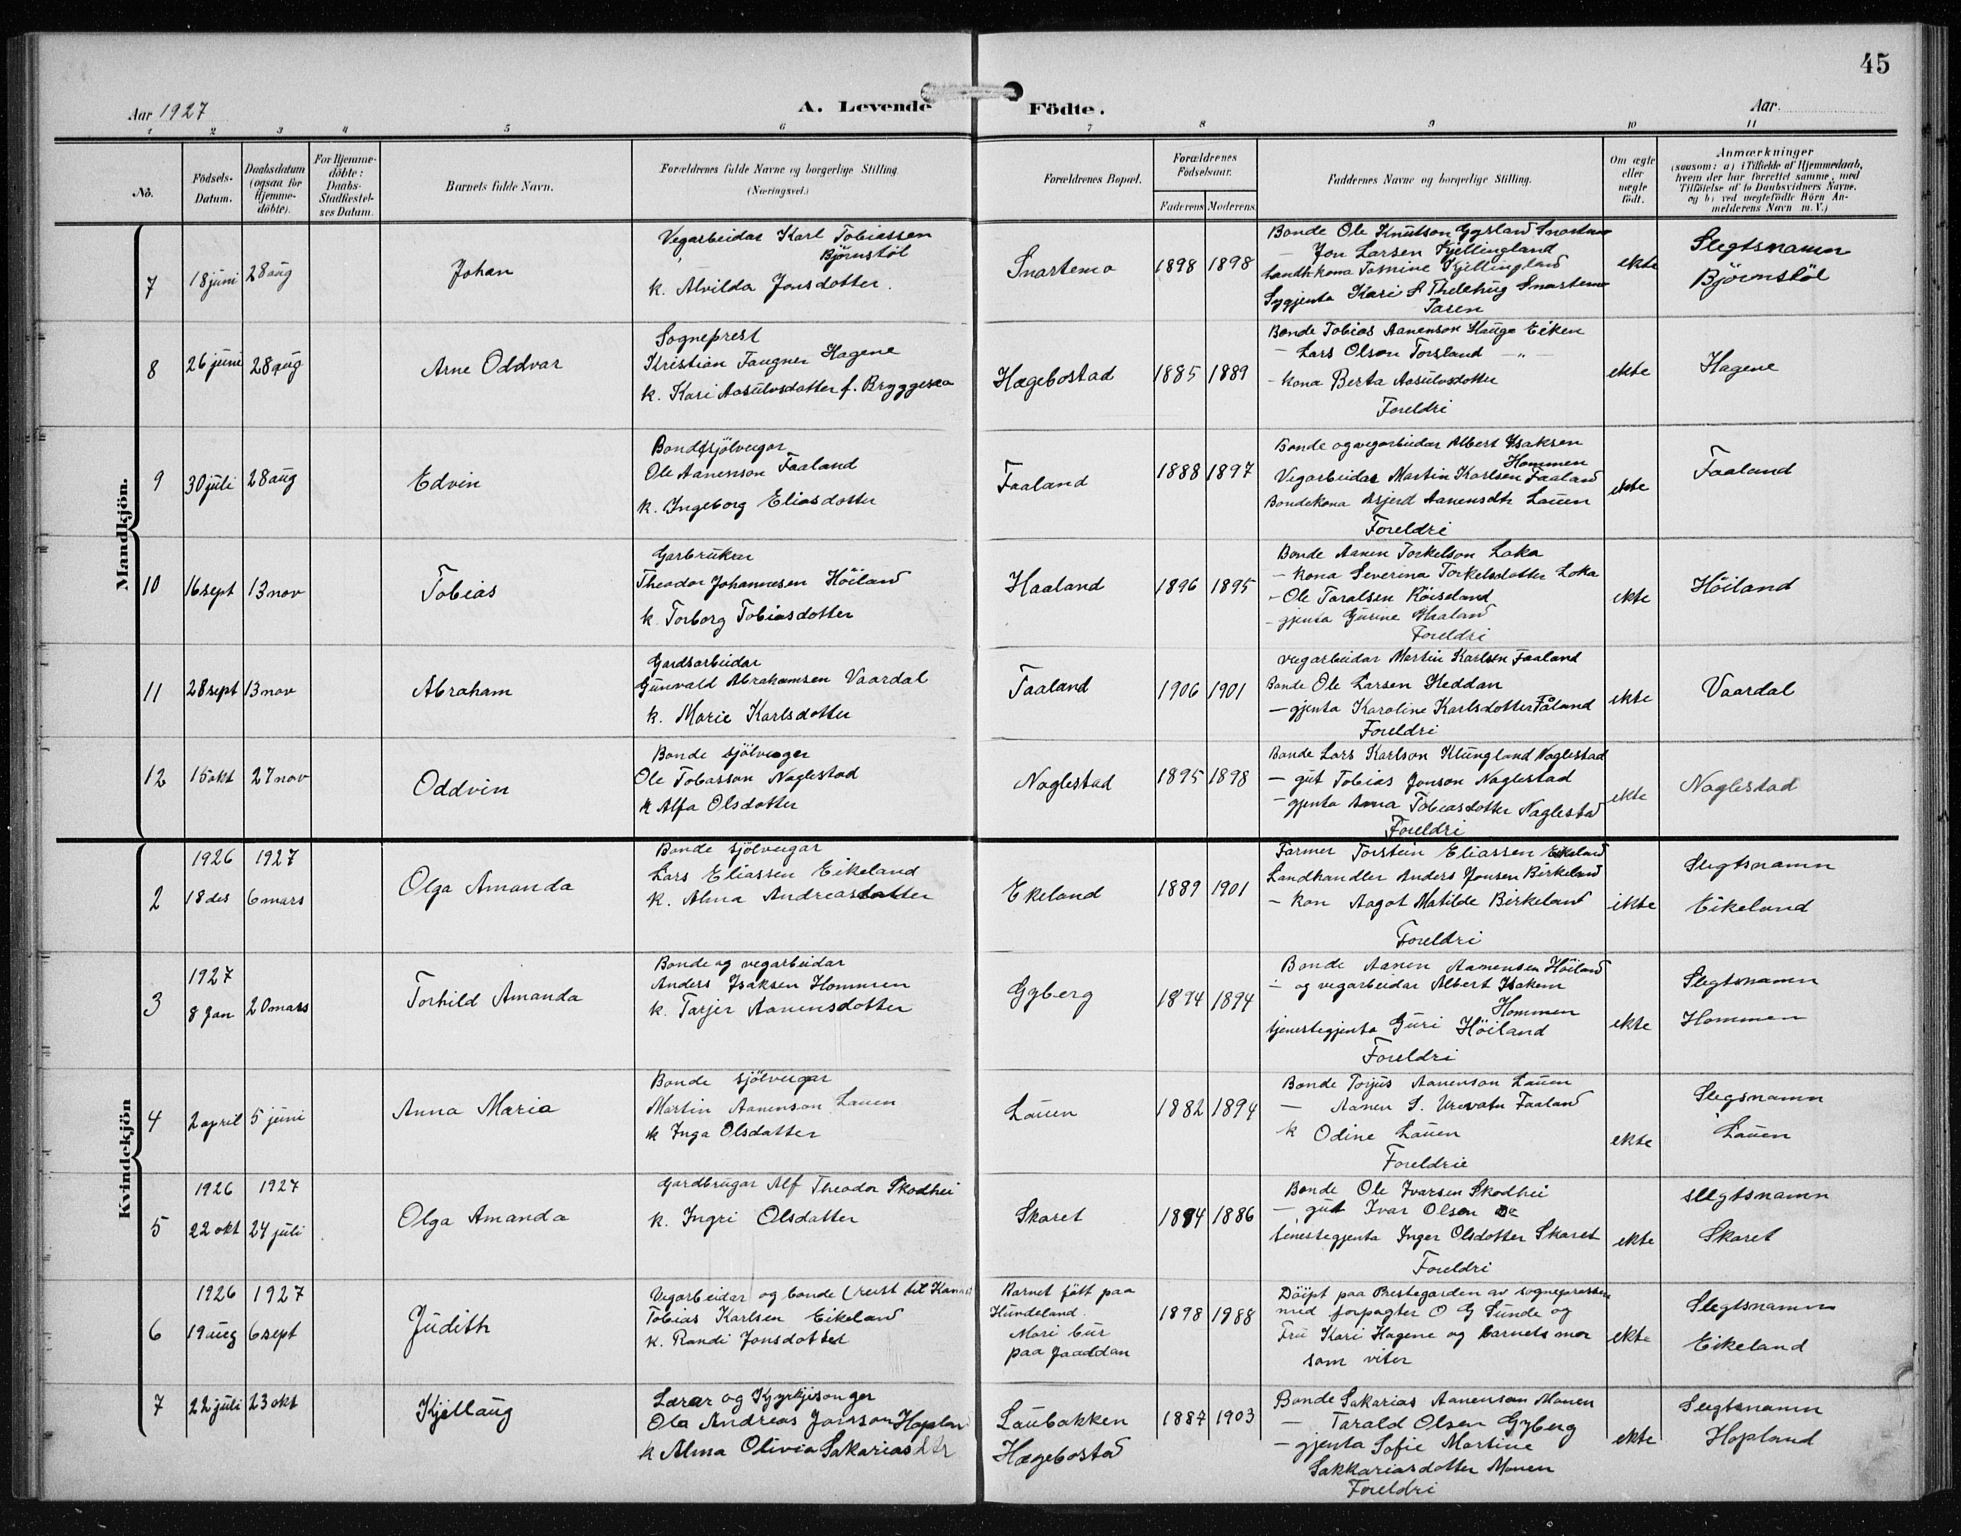 45
Aar 1927
A. Levende Födte.
Aar
1 2 3 4 5 6 7 8 9 10 11
No.
Födsels-Datum.
Daabsdatum (ogsaa for Hjemme-döbte).
For Hjemme-döbte: Daabs-Stadfæstel-ses Datum.
Barnets fulde Navn.
Forældrenes fulde Navne og borgerlige Stilling (Næringsvei.)
Forældrenes Bopæl.
Forældrenes Födselsaar.
Faderens Moderens.
Faddernes Navne og borgerlige Stilling.
Om ægte eller uægte födt.
Anmærkninger
(saasom: a) i Tilfælde af Hjemmedaab,
hvem der har forrettet samme, med
Tilföielse af to Daabsvidners Navne,
og b) ved uægtefödte Börn An-
melderens Navn m. V.)
Mandkjön.
7 18 juni 28 aug
Johan
Vegarbeidar Karl Tobiassen
Björnstöl
k. Alvilda Jonsdotter.
Snartemo
1898 1898
Bonde Ole Knutson Gysland Snartemo
— Jon Larsen Kjellingland
Landh.kona Tomine Kjellingland
Sygjenta Kari S Snartemo
Faren
ekte
Slegtsnamn
Björnstöl
8 26 juni 28 aug
Arne Oddvar
Sogneprest
Kristian Faugner Hagene
k. Kari Aasulvsdotter f. Bryggesaa
Hægebostad
1885 1889
Bonde Tobias Aanenson Hauge Eiken
— Lars Olson Torsland — „ —
- kona Berta Aasulvsdotter
Foreldri
ekte
Hagene
9 30 juli 28 aug
Edvin
Bonde sjölveigar
Ole Aanenson Faaland
k. Ingeborg Eliasdotter
Faaland
1888 1897
Bonde og vegarbeidar Albert Isaksen
Hommen
Vegarbeidar Martin Karlsen Faaland
Bondekona Asjerd Aanensdtr Lauen
Foreldri
ekte
Faaland
10 16 sept 13 nov
Tobias
Garbruker
Theodor Johannesen Höiland
k. Torborg Tobiasdotter
Haaland
1896 1895
Bonde Aanen Torkelson Loka
- kona Severina Torkelsdotter Loka
- Ole Taralsen Röiseland
- gjenta Gurine Haaland
Foreldri
ekte
Höiland
11 28 sept 13 nov
Abraham
Gardsarbeidar
Gunvald Abrahamsen Vaardal
k. Marie Karlsdotter
Faaland
1906 1901
Vegarbeidar Martin Karlsen Faaland
Bonde Ole Larsen Heddan
— gjenta Karoline Karlsdotter Fåland
Foreldri
ekte
Vaardal
12 15 okt 27 nov
Oddvin
Bonde sjölveiger
Ole Tobiasson Naglestad
k Alfa Olsdotter
Naglestad
1895 1898
Bonde Lars Karlson Klungland Naglestad
— gut Tobias Jonson Naglestad
— gjenta Anna Tobiasdotter Naglestad
Foreldri
ekte
Naglestad
Kvindekjön
1926 1927
2 18 des 6 mars
Olga Amanda
Bonde sjölveigar
Lars Eliassen Eikeland
k. Alma Andreasdatter
Ekeland
1889 1901
Farmer Torstein Eliassen Eikeland
Landhandler Anders Jonsen Birkeland
— kon Aagot Matilde Birkeland
Foreldri
ekte
Slegtsnamn
Eikeland
1927
3 8 Jan 20 mars
Torhild Amanda
Bonde og vegarbeidar
Anders Isaksen Hommen
k. Tarjer Aanensdotter
Gyberg
1894 1894
Bonde Aanen Aanensen Höiland
— og vegarbeidar Albert Isaksen
Hommen
tjenestegjenta Guri Höiland
Foreldri
ekte
Slegtsnamn
Hommen
4 2 april 5 juni
Anna Maria
Bonde sjölveigar
Martin Aanenson Lauen
k Inga Olsdatter
Lauen
1882 1894
Bonde Torjus Aanenson Lauen
— Aanen S. Urevatn Faaland
k Odine Lauen
Foreldrie
ekte
Slegsnamn
Lauen
1926 1927
5 22 okt 24 juli
Olga Amanda
Gardbrugar Alf Theodor Skodhei
k. Ingri Olsdatter
Skaret
1894 1886
Bonde Ole Ivarsen Skodhei
— gut Ivar Olsen Do
tenestegjenta Inger Olsdotter Skaret
Foreldri
ekte
Slegtsnamn
Skaret
1926 1927
6 19 aug 6 sept
Judith
Vegarbeidar og bonde (reist til
Tobias Karlsen Eikeland
k. Randi Jonsdotter
Barnet föt paa
Hundeland.
Mori bur
paa Jaaddan
1898 1988
Döipt paa Prestegarden av sognepresten
med forpagter O G Sunde og
Fru Kari Hagene og barnets mor
som viter
ekte
Slegtsnamn
Eikeland
7 22 juli 23 okt
Kjellaug
Lærar og Kyrkjesonger
Ola Andreas Jonsson Hopland
k Alma Olivia Sakariasdtr
Laubakken
Hægebostad
1887 1903
Bonde Sakarias Aanenson Monen
— Tarald Olsen Gyberg
— gjenta Sofie Martine
Sakkariasdotter Monen
Foreldri
ekte
Slegtsnamn
Hopland